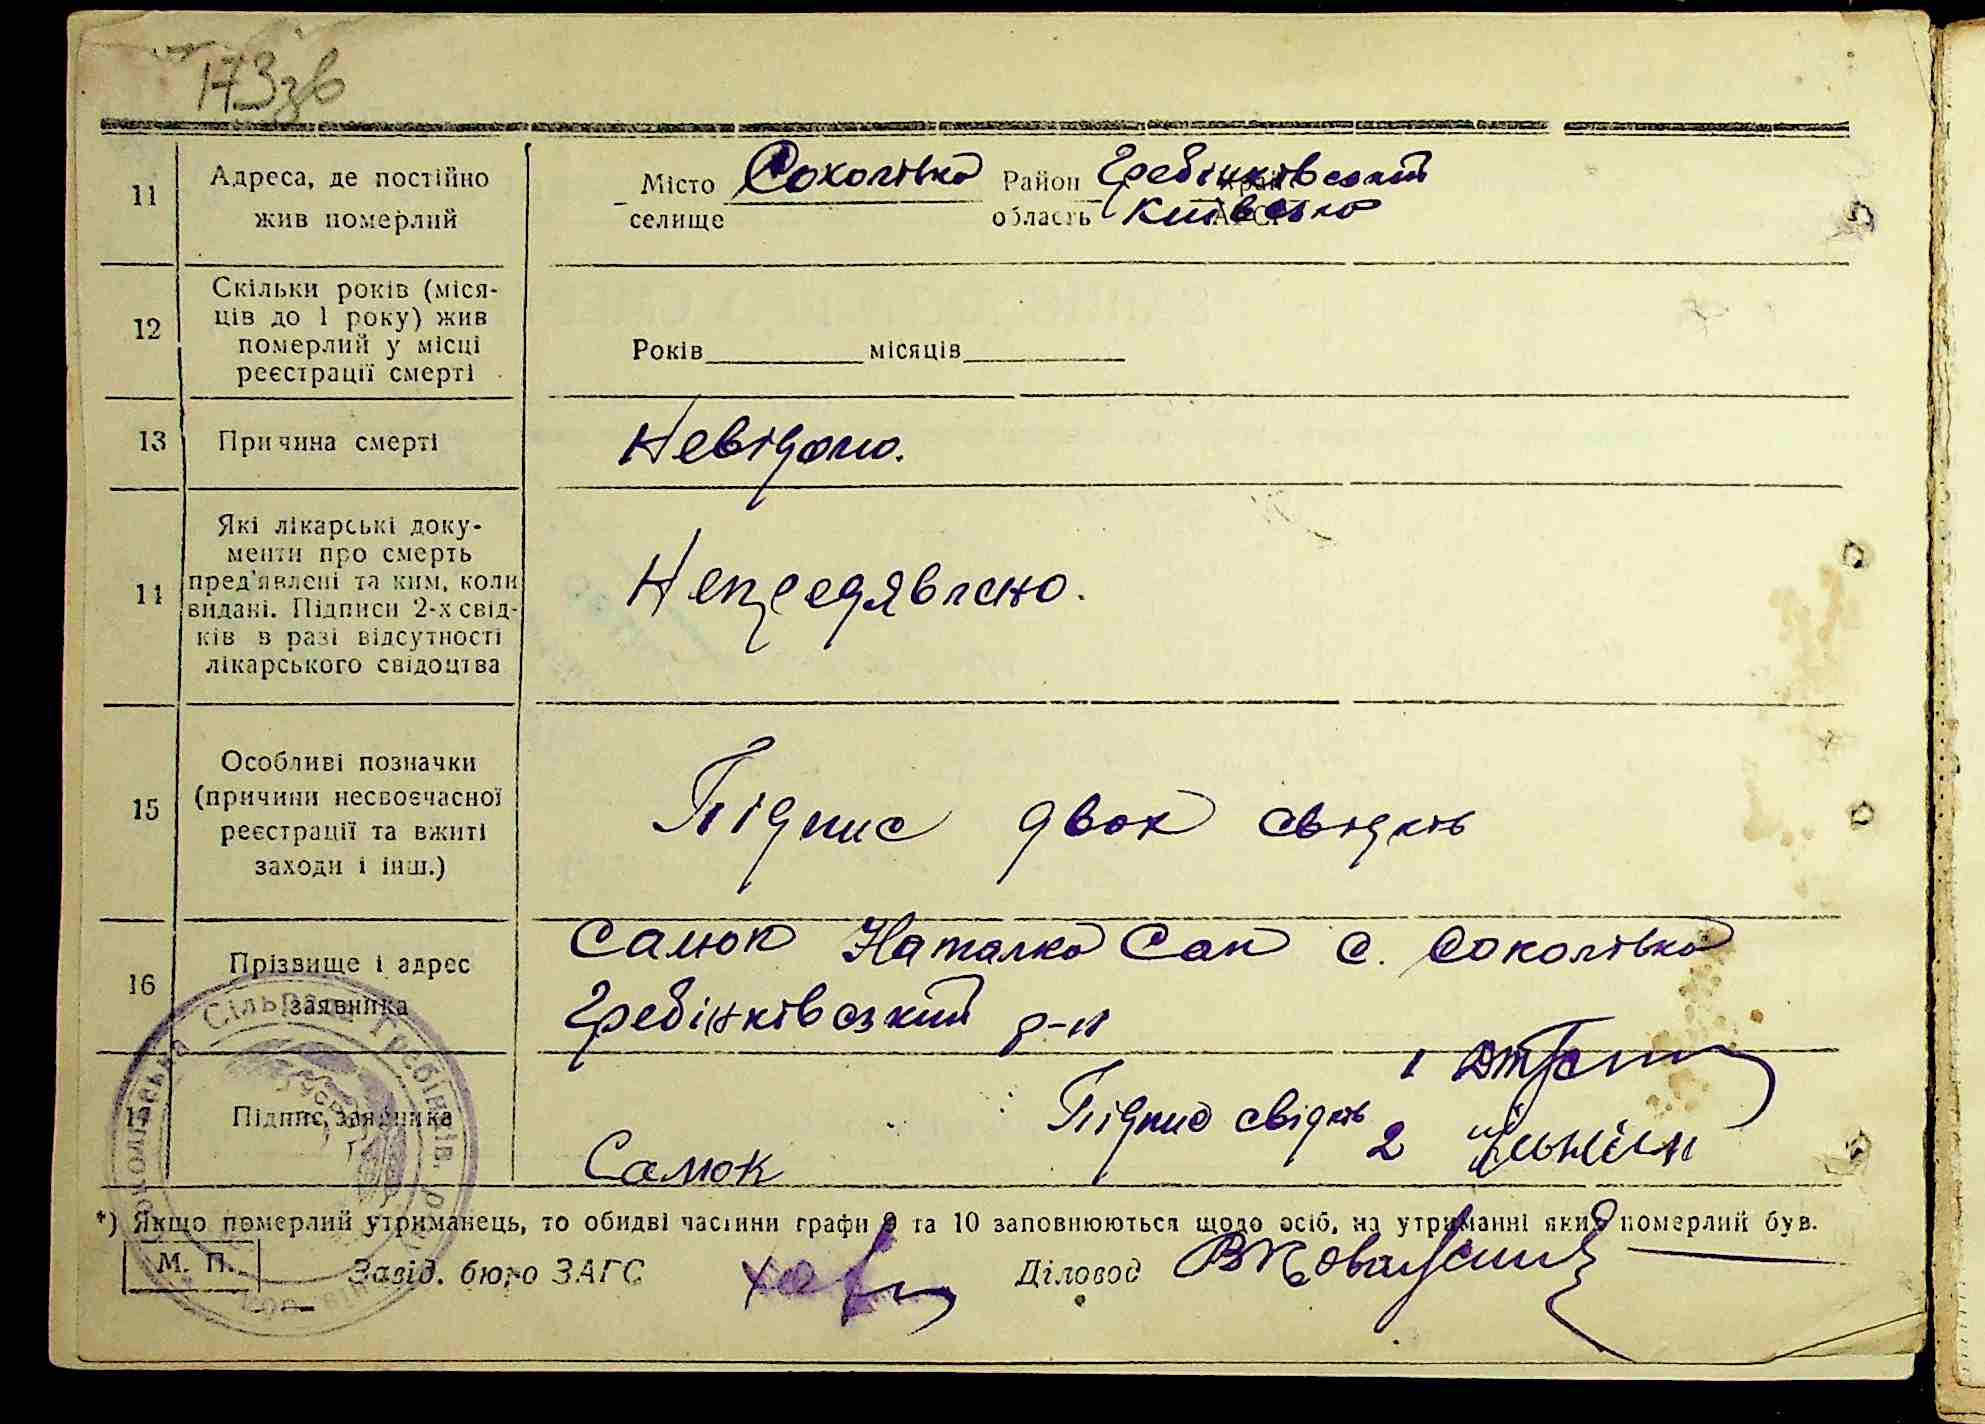 173зв
11
Адреса, де постійно
жив померлий
Місто Соколівка Район Гребінківський
селище область Київська
12
Скільки років (міся-
ців до 1 року) жив
померлий у місці
реєстрації смерті
Років місяців
13
Причина смерті
Невідомо.
14
Які лікарські доку-
менти про смерть
пред'явлені та ким, коли
видані. Підписи 2-х свід-
ків в разі відсутності
лікарського свідоцтва
Непредявлено.
15
Особливі позначки
(причини несвоєчасної
реєстрації та вжиті
заходи і інш.)
Підпис двох свідків
16
Прізвище і адрес
заявника
Самок Наталка Сак с. Соколівка
Гребінківський р-н
17
Підпис заявника
Самок
Підпис свідків
1
2
*) Якщо померлий утриманець, то обидві частини графи 9 та 10 заповнюються щодо осіб, на утриманні яких померлий був.
М. П.
Завід. бюро ЗАГС
Діловод
Сільрада Гребінків.